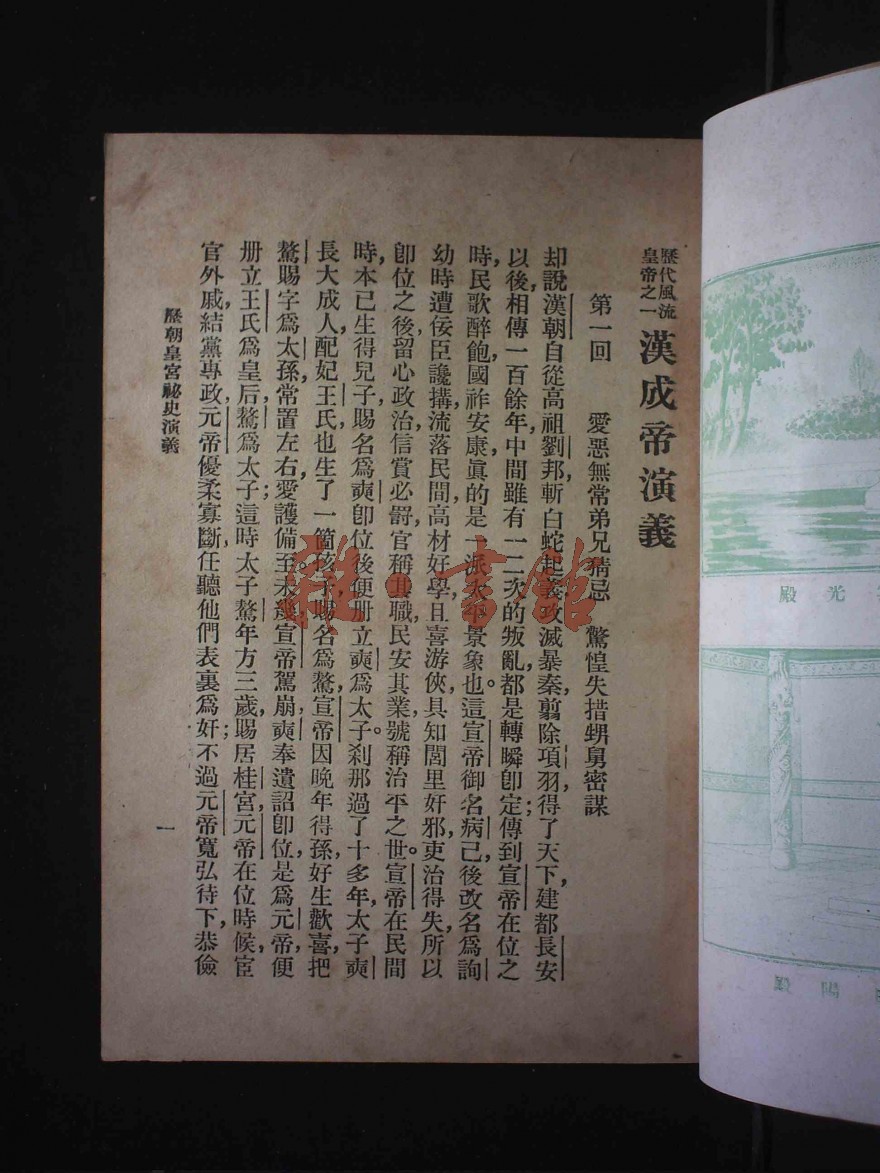 歷代風流
皇帝之一
漢成帝演義
第一回　愛惡無常弟兄猜忌　驚惶失措甥舅密謀
却說漢朝自從高祖劉邦斬白蛇起義攻滅暴秦，翦除項羽，得了天下，建都長安
以後，相傳一百餘年，中間雖有一二次的叛亂，都是轉瞬卽定；傳到宣帝在位之
時，民歌醉飽，國祚安康，眞的是一派太平景象也。這宣帝御名病己，後改名爲詢，
幼時遭佞臣讒搆，流落民間，高材好學，且喜游俠，具知閭里奸邪，吏治得失，所以
卽位之後，留心政治，信賞必罸，官稱其職，民安其業，號稱治平之世。宣帝在民間
時，本已生得兒子，賜名爲奭，卽位後便册立奭爲太子。刹那過了十多年，太子奭
長大成人，配妃王氏，也生了一箇孩子，賜名爲驁，宣帝因晚年得孫，好生歡喜，把
驁賜字爲太孫，常置左右，愛護備至。未幾宣帝駕崩，奭奉遺詔卽位，是爲元帝，便
册立王氏爲皇后，驁爲太子；這時太子驁年方三歲，賜居桂宮，元帝在位時候，宦
官外戚，結黨專政，元帝優柔寡斷，任聽他們表裏爲奸；不過元帝寬弘待下，恭儉
歷朝皇宮祕史演義
一
光殿
陽殿
書館